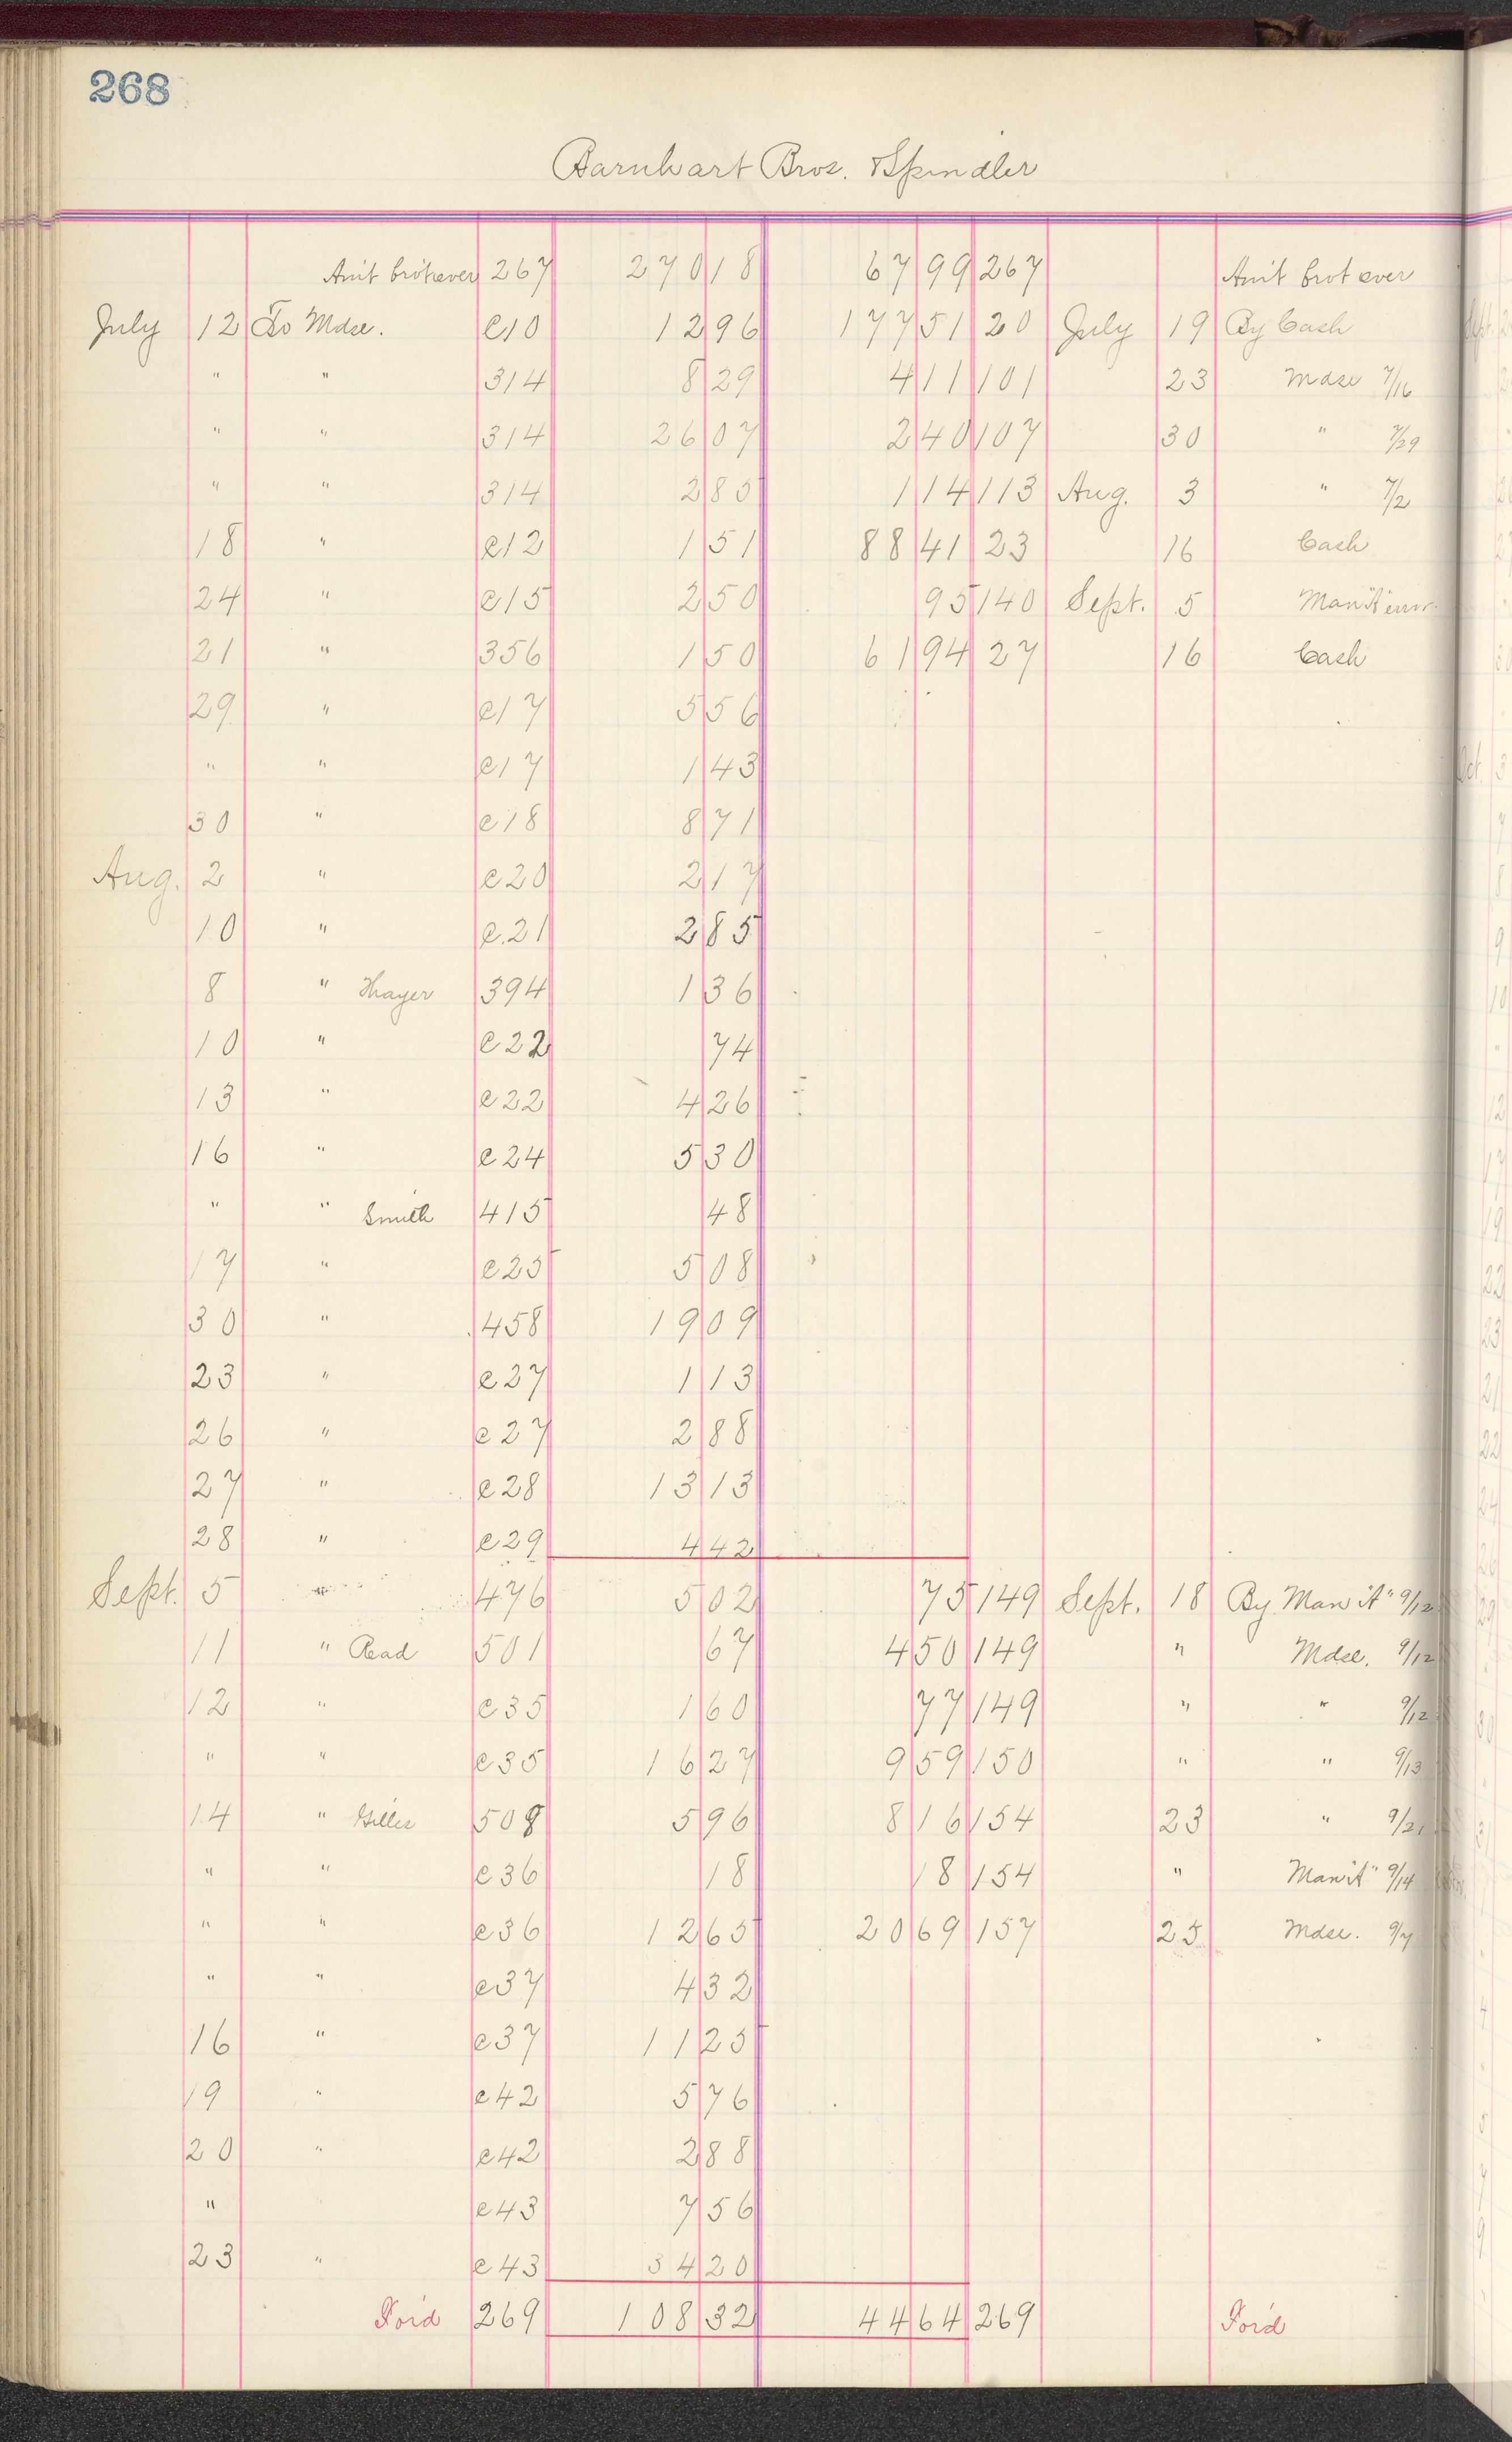 268
Barnhart Bros. & Spindler
Am't bro't over 267 270 18 67 99 267 Am't brot over
July 12 To Mdse. e10 12 96 177 51 20 July 19 By Cash
" " 314 8 29 4 11 101 23 Mdse 7/16
" " 314 26 07 2 40 107 30 " 7/29
" " 314 2 85 1 14 113 Aug. 3 " 7/2
18 " e12 1 51 88 41 23 16 Cash
24 " e15 2 50 95 140 Sept. 5 Man'it error
21 " 356 1 50 61 94 27 16 Cash
29 " e17 5 56
" " e17 1 43
30 " e18 8 71
Aug. 2 " e20 2 17
10 " e.21 2 85
8 " Thayer 394 1 36
10 " e22 74
13 " e22 4 26
16 " e24 5 30
" " Smith 415 48
17 " e25 5 08
30 " 458 19 09
23 " e27 1 13
26 " e27 2 88
27 " e28 13 13
28 " e29 4 42
Sept. 5 " 476 5 02 75 149 Sept. 18 By Man'it" 9/12
11 " Read 501 67 4 50 149 " Mdse. 9/12
12 " e35 1 60 77 149 " " 9/12
" " e35 16 27 9 59 150 " " 9/13
14 " Gillis 508 5 96 8 16 154 23 " 9/21
" " e36 18 18 154 " Man'it" 9/14
" " e36 12 65 20 69 157 25 Mdse. 9/7
" " e37 4 32
16 " e37 11 25
19 " e42 5 76
20 " e42 2 88
" e43 7 56
23 " e43 34 20
For'd 269 108 32 44 64 269 For'd